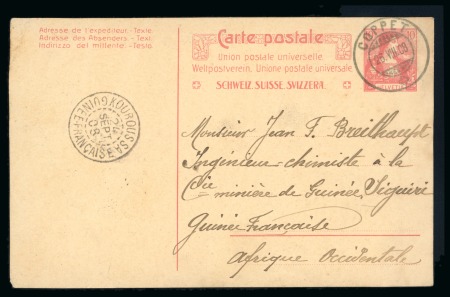 Adresse de l'expéditeur - Texte
Adresse des Absenders. - Text
Indirizzo del mittente - Testo
Carte postale
Union postale universelle
Weltpostverein. Unione postale universale
SCHWEIZ. SUISSE. SVIZZERA.
COPPET
HELVETIA
KOUROUSSA
24
SEPT
08
GUINÉE FRANÇAISE
Monsieur Jean F. Breithaupt
Ingénieur-chimiste à la
Cie minière de Guinée, Siguiri
Guinée Française
Afrique Occidentale